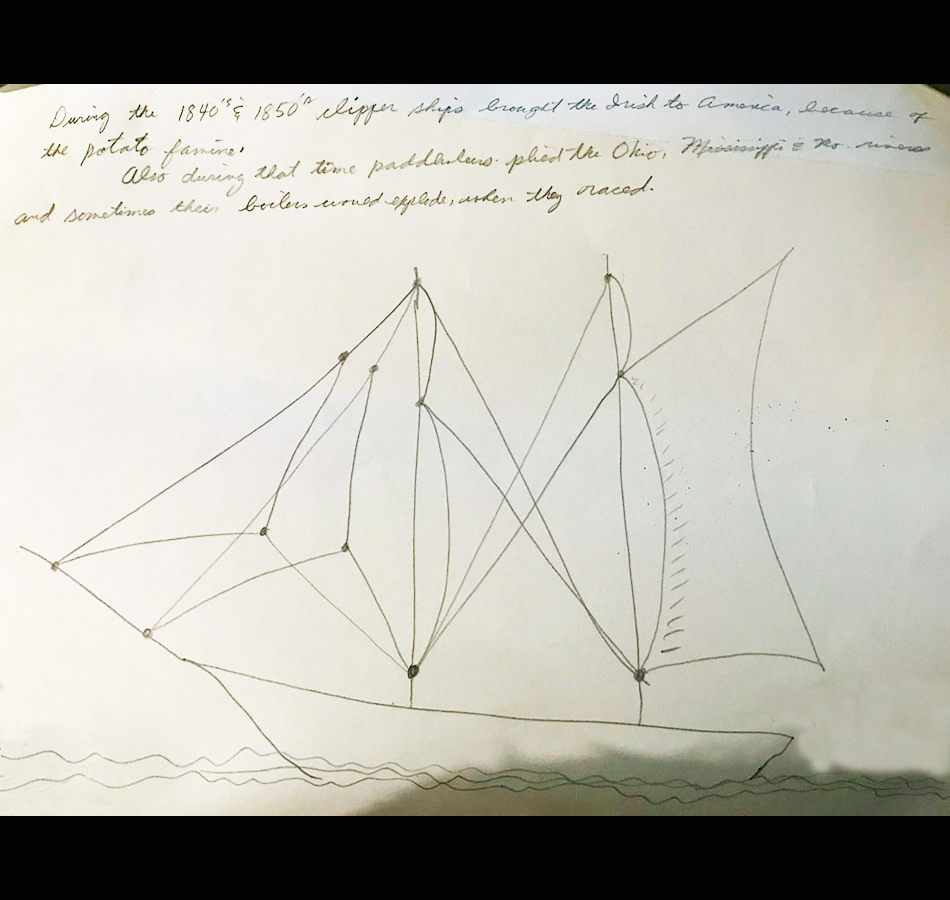 During the 1840's & 1850's clipper ships brought the Irish to America, because of
the potato famine.
Also during that time paddlewheelers plied the Ohio, Mississippi & Mo. rivers
and sometimes their boilers would explode, when they raced.